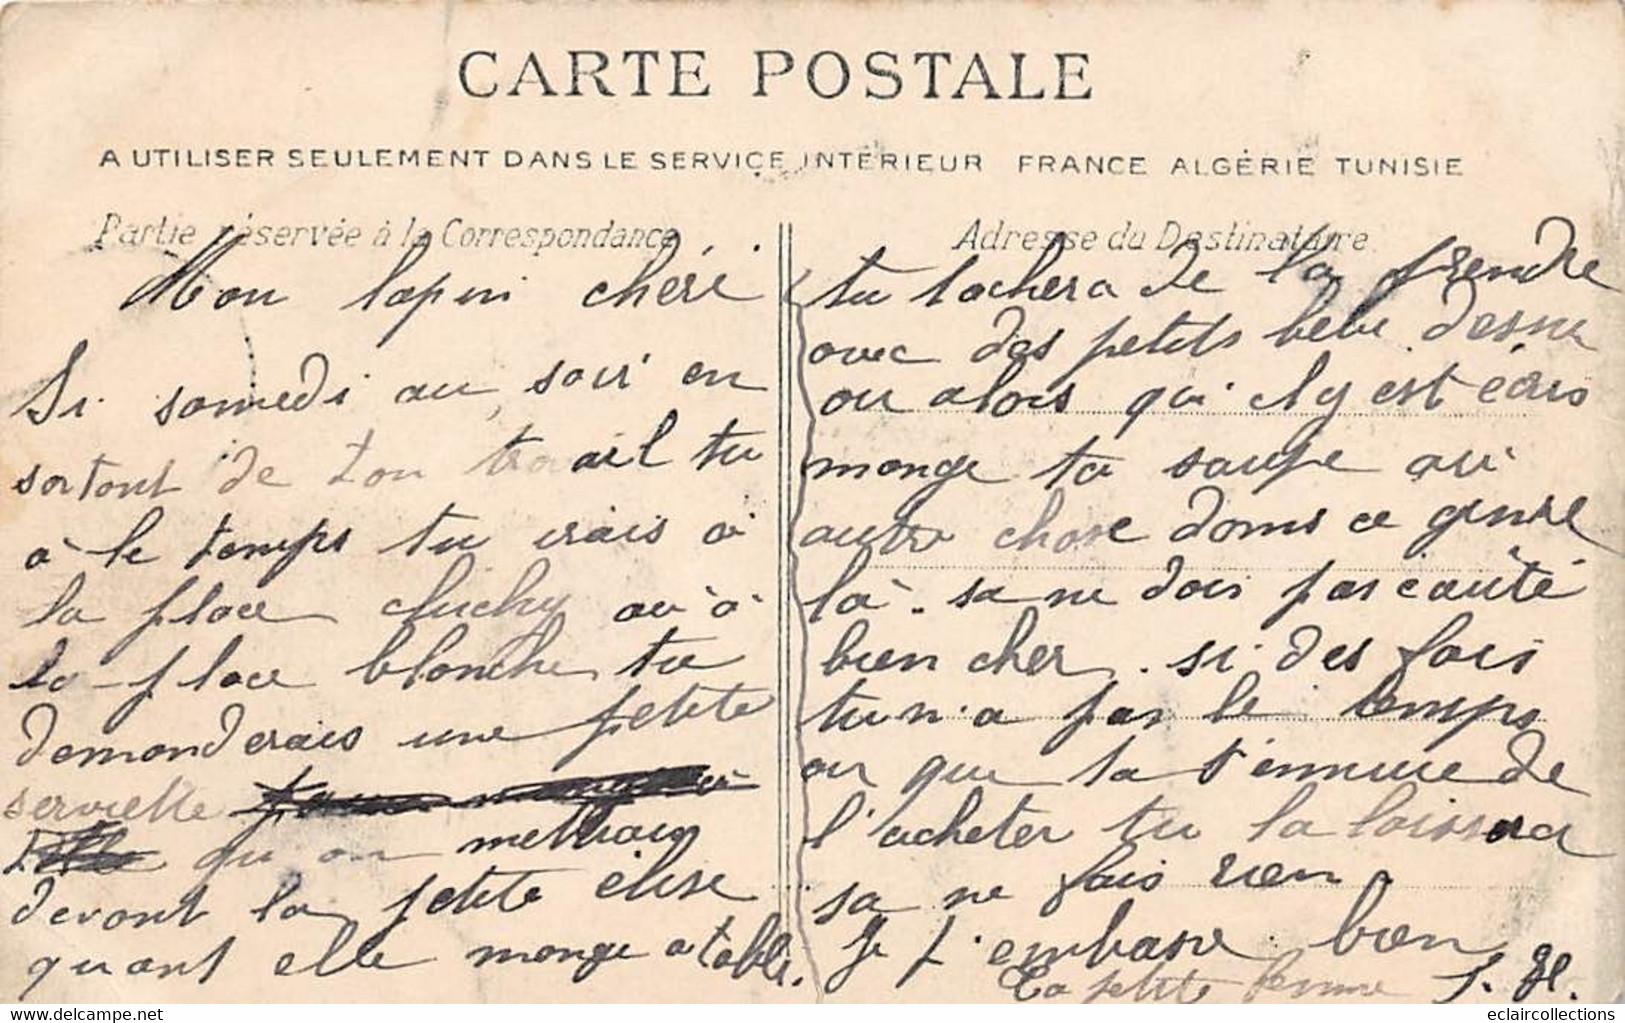 CARTE POSTALE
A UTILISER SEULEMENT DANS LE SERVICE INTÉRIEUR FRANCE ALGÉRIE TUNISIE
Partie réservée à la Correspondance
Mon lapin chéri
Si samedi au soir en
sortant de ton travail tu
à le temps tu irais à
la place clichy ou à
la place blanche tu
demanderais une petite
serviette
qu on mettrais
devant la petite élise
quant elle mange a table.
Adresse du Destinataire
tu tachera de la prendre
avec des petits bebe dessu
ou alois qui il y est écris
mange ta soupe ou
autre chose dans ce genre
là. sa ne dois pas couté
bien cher. si des fois
tu n'a pas le temps
ou que sa t'ennuie de
l'acheter tu la laissera
sa ne fais rien.
Je t'embasse bien
Ta petite femme
eclaircollections